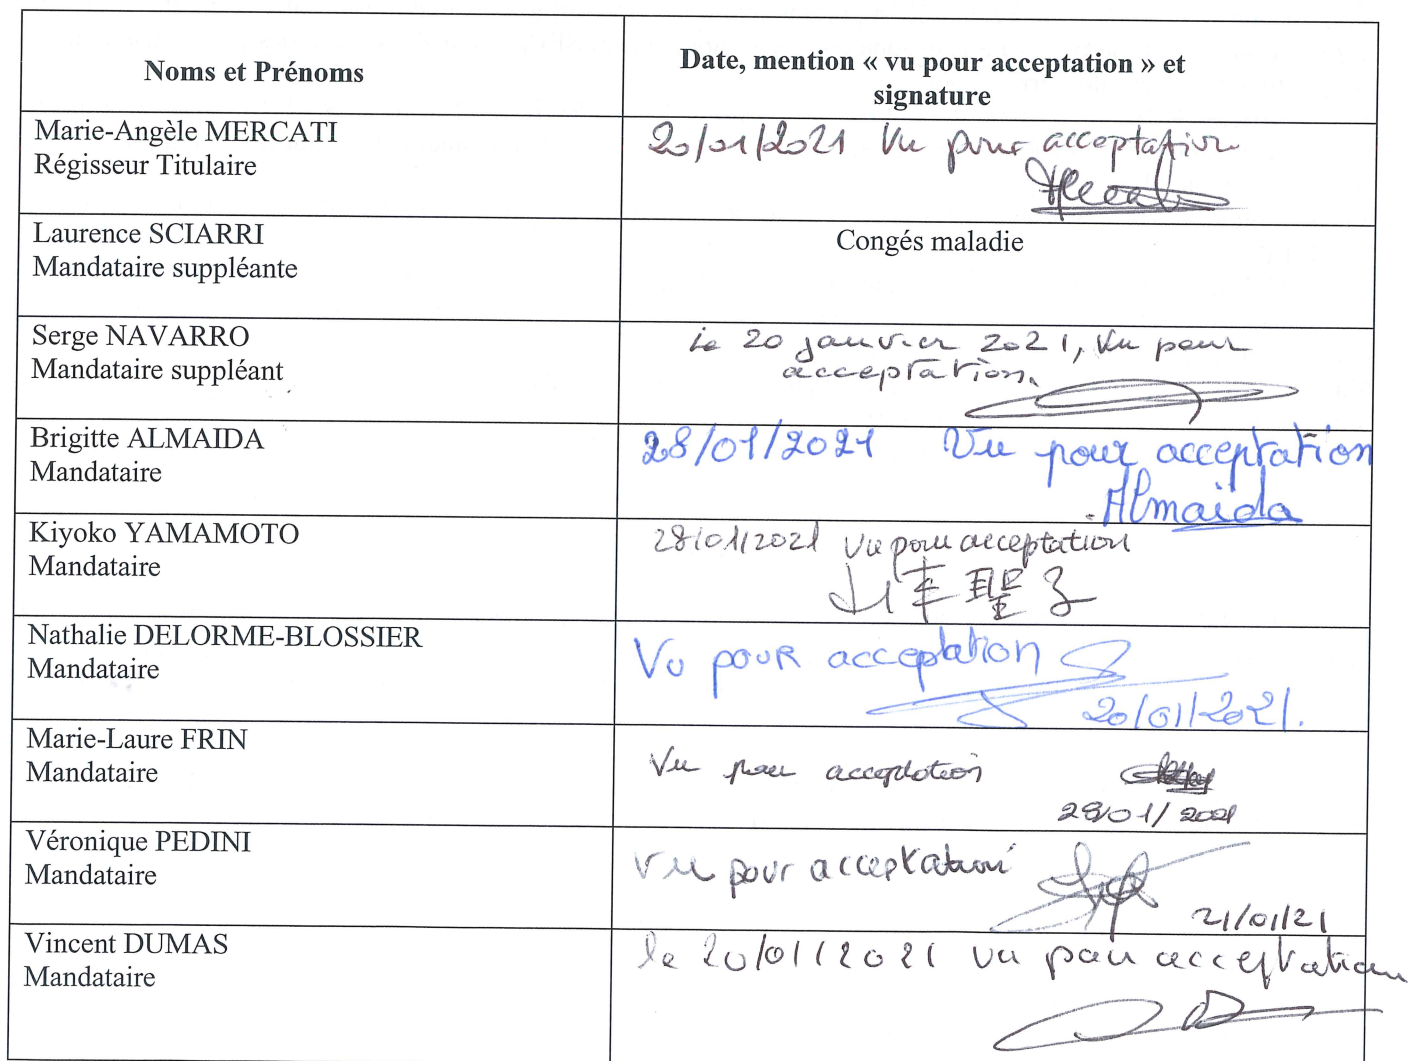 Noms et Prénoms
Date, mention « vu pour acceptation » et
signature
Marie-Angèle MERCATI
Régisseur Titulaire
20/01/2021 Vu pour acceptation
Laurence SCIARRI
Mandataire suppléante
Congés maladie
Serge NAVARRO
Mandataire suppléant
le 20 janvier 2021, Vu pour
acceptation.
Brigitte ALMAIDA
Mandataire
28/01/2021 Vu pour acceptation
Almaida
Kiyoko YAMAMOTO
Mandataire
28/01/2021 Vu pour acceptation
山本聖子
Nathalie DELORME-BLOSSIER
Mandataire
Vu pour acceptation
20/01/2021.
Marie-Laure FRIN
Mandataire
Vu pour acceptation
28/01/2021
Véronique PEDINI
Mandataire
Vu pour acceptation
21/01/21
Vincent DUMAS
Mandataire
le 20/01/2021 vu pour acceptation